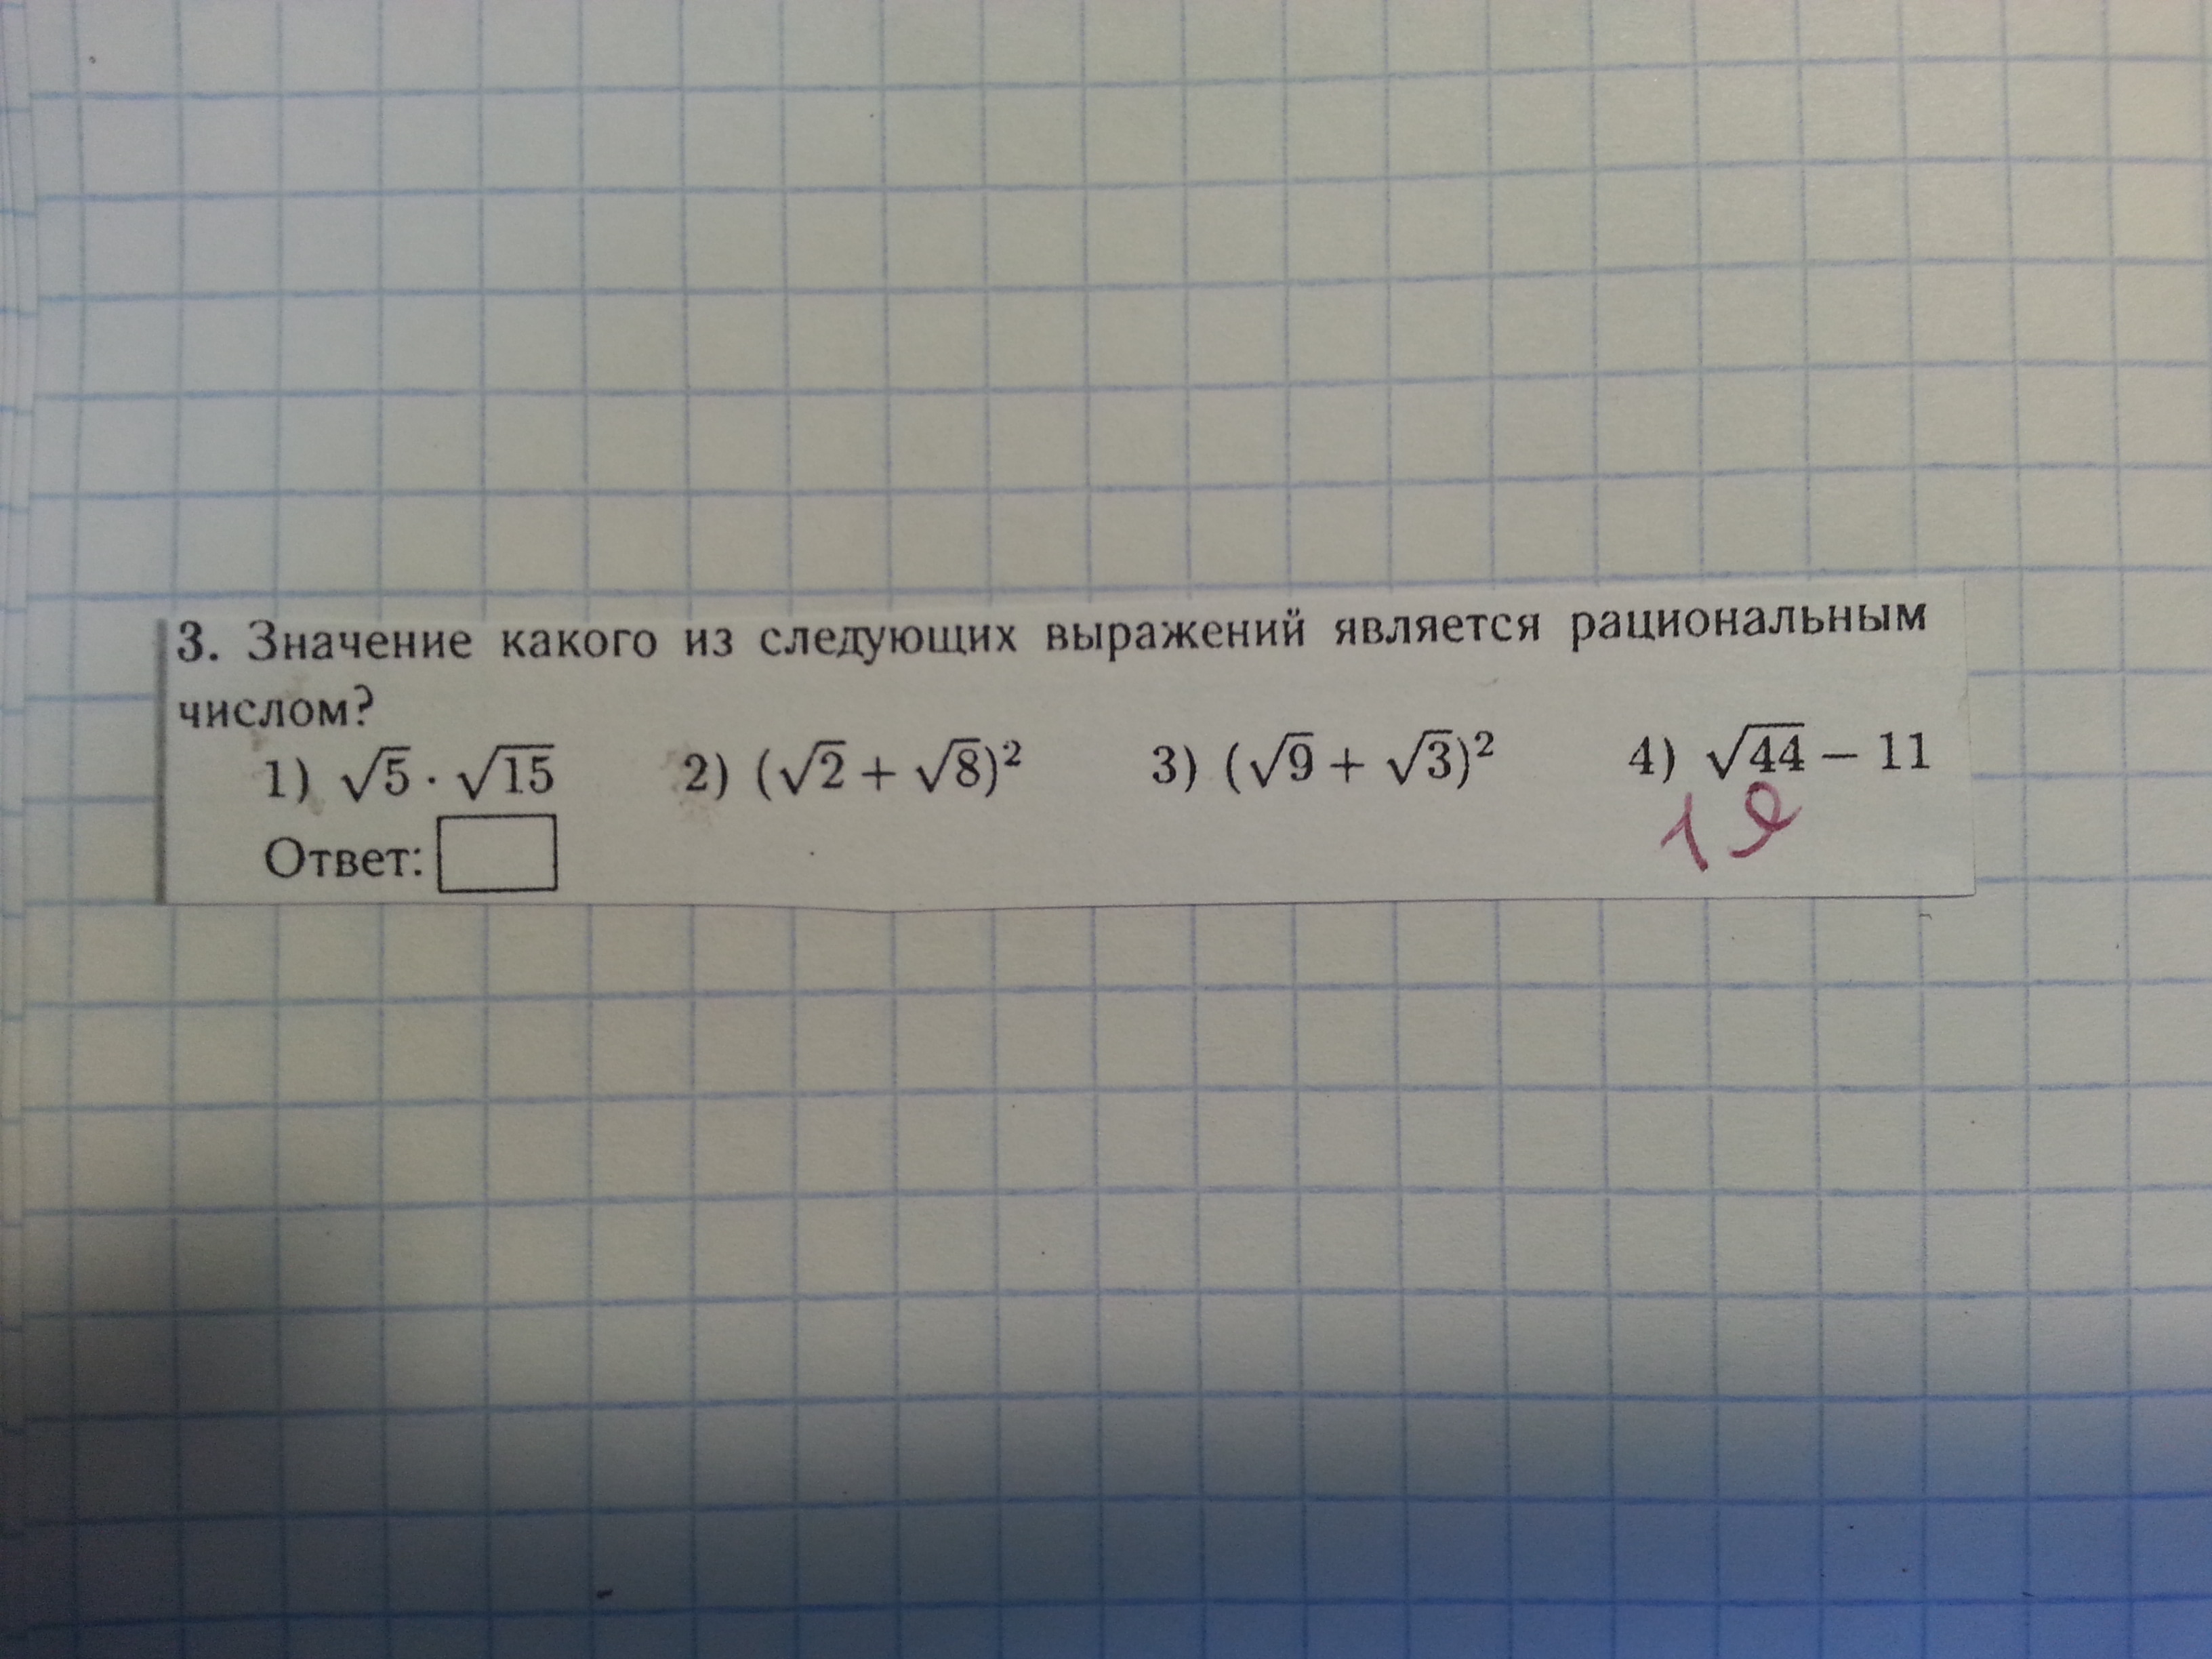 3. Значение какого из следующих выражений является рациональным
числом?
1) √5 · √15 2) (√2 + √8)² 3) (√9 + √3)² 4) √44 − 11
Ответ: